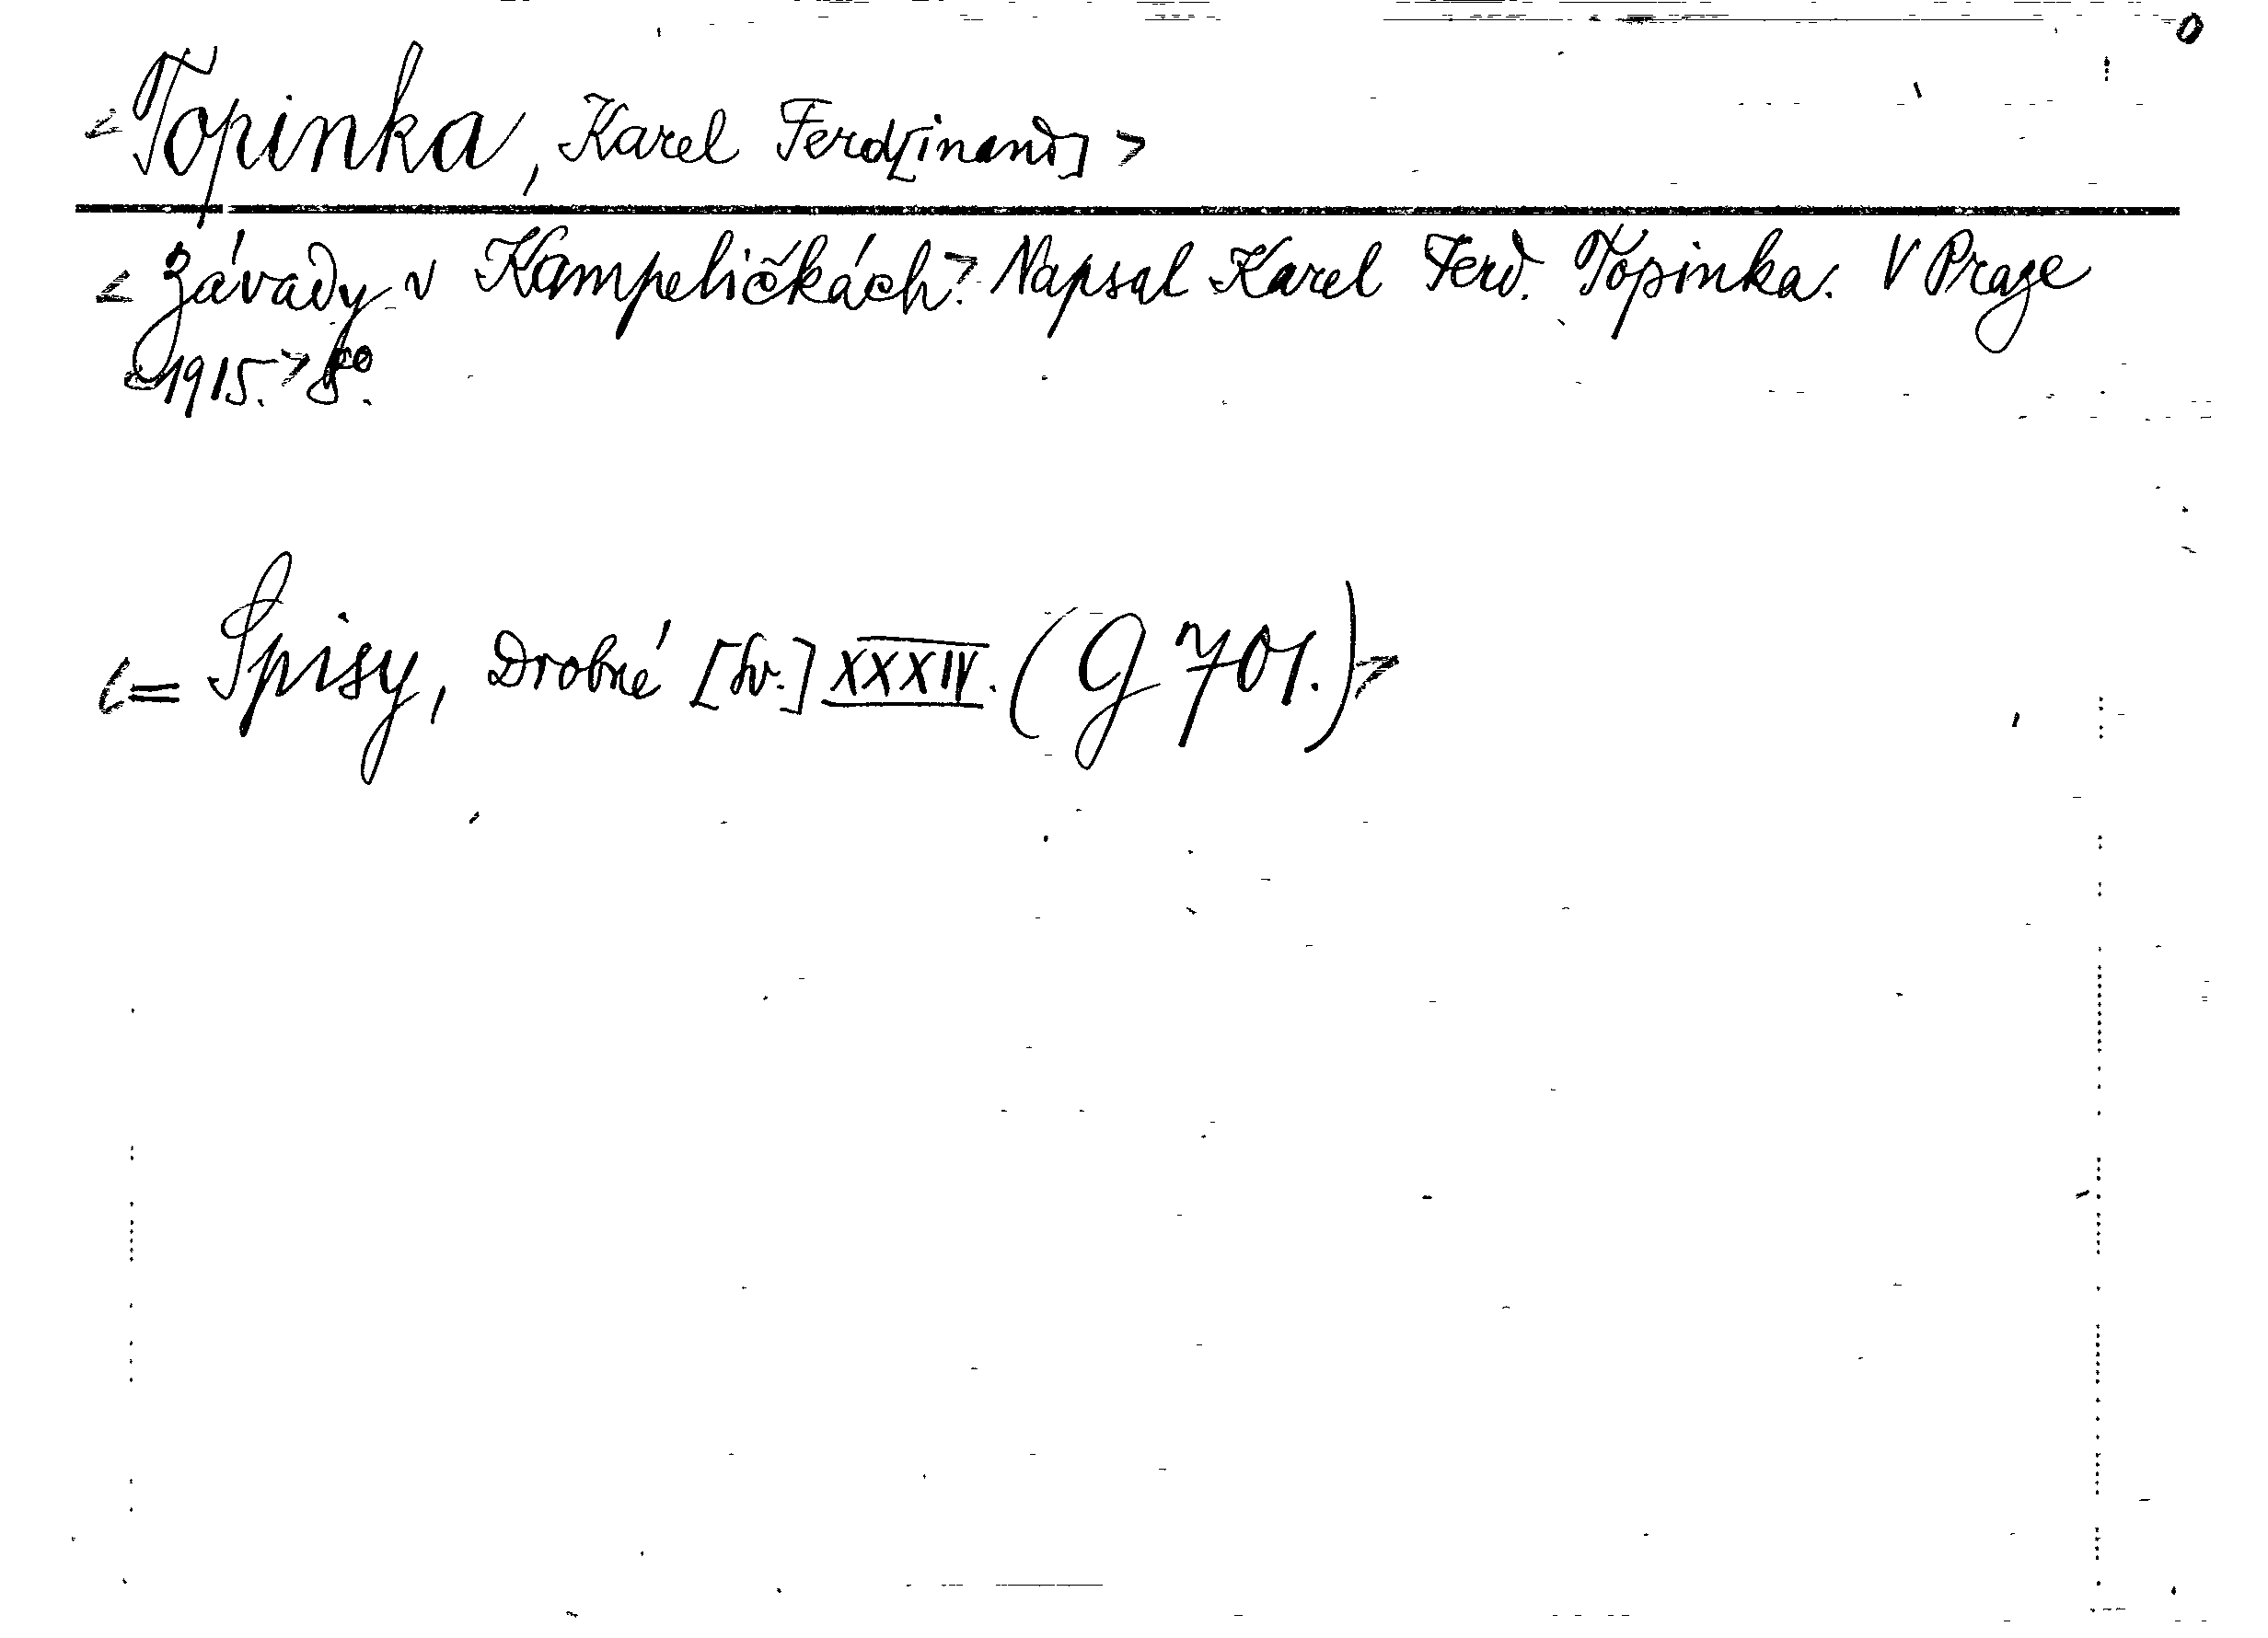 <Topinka, Karel Ferd[inand]>
<Závady v Kampeličkách.> Napsal Karel Ferd. Topinka. V Praze
<1915.> 8º.
<= Spisy, Drobné [sv.] XXXIV. (G 701.)>